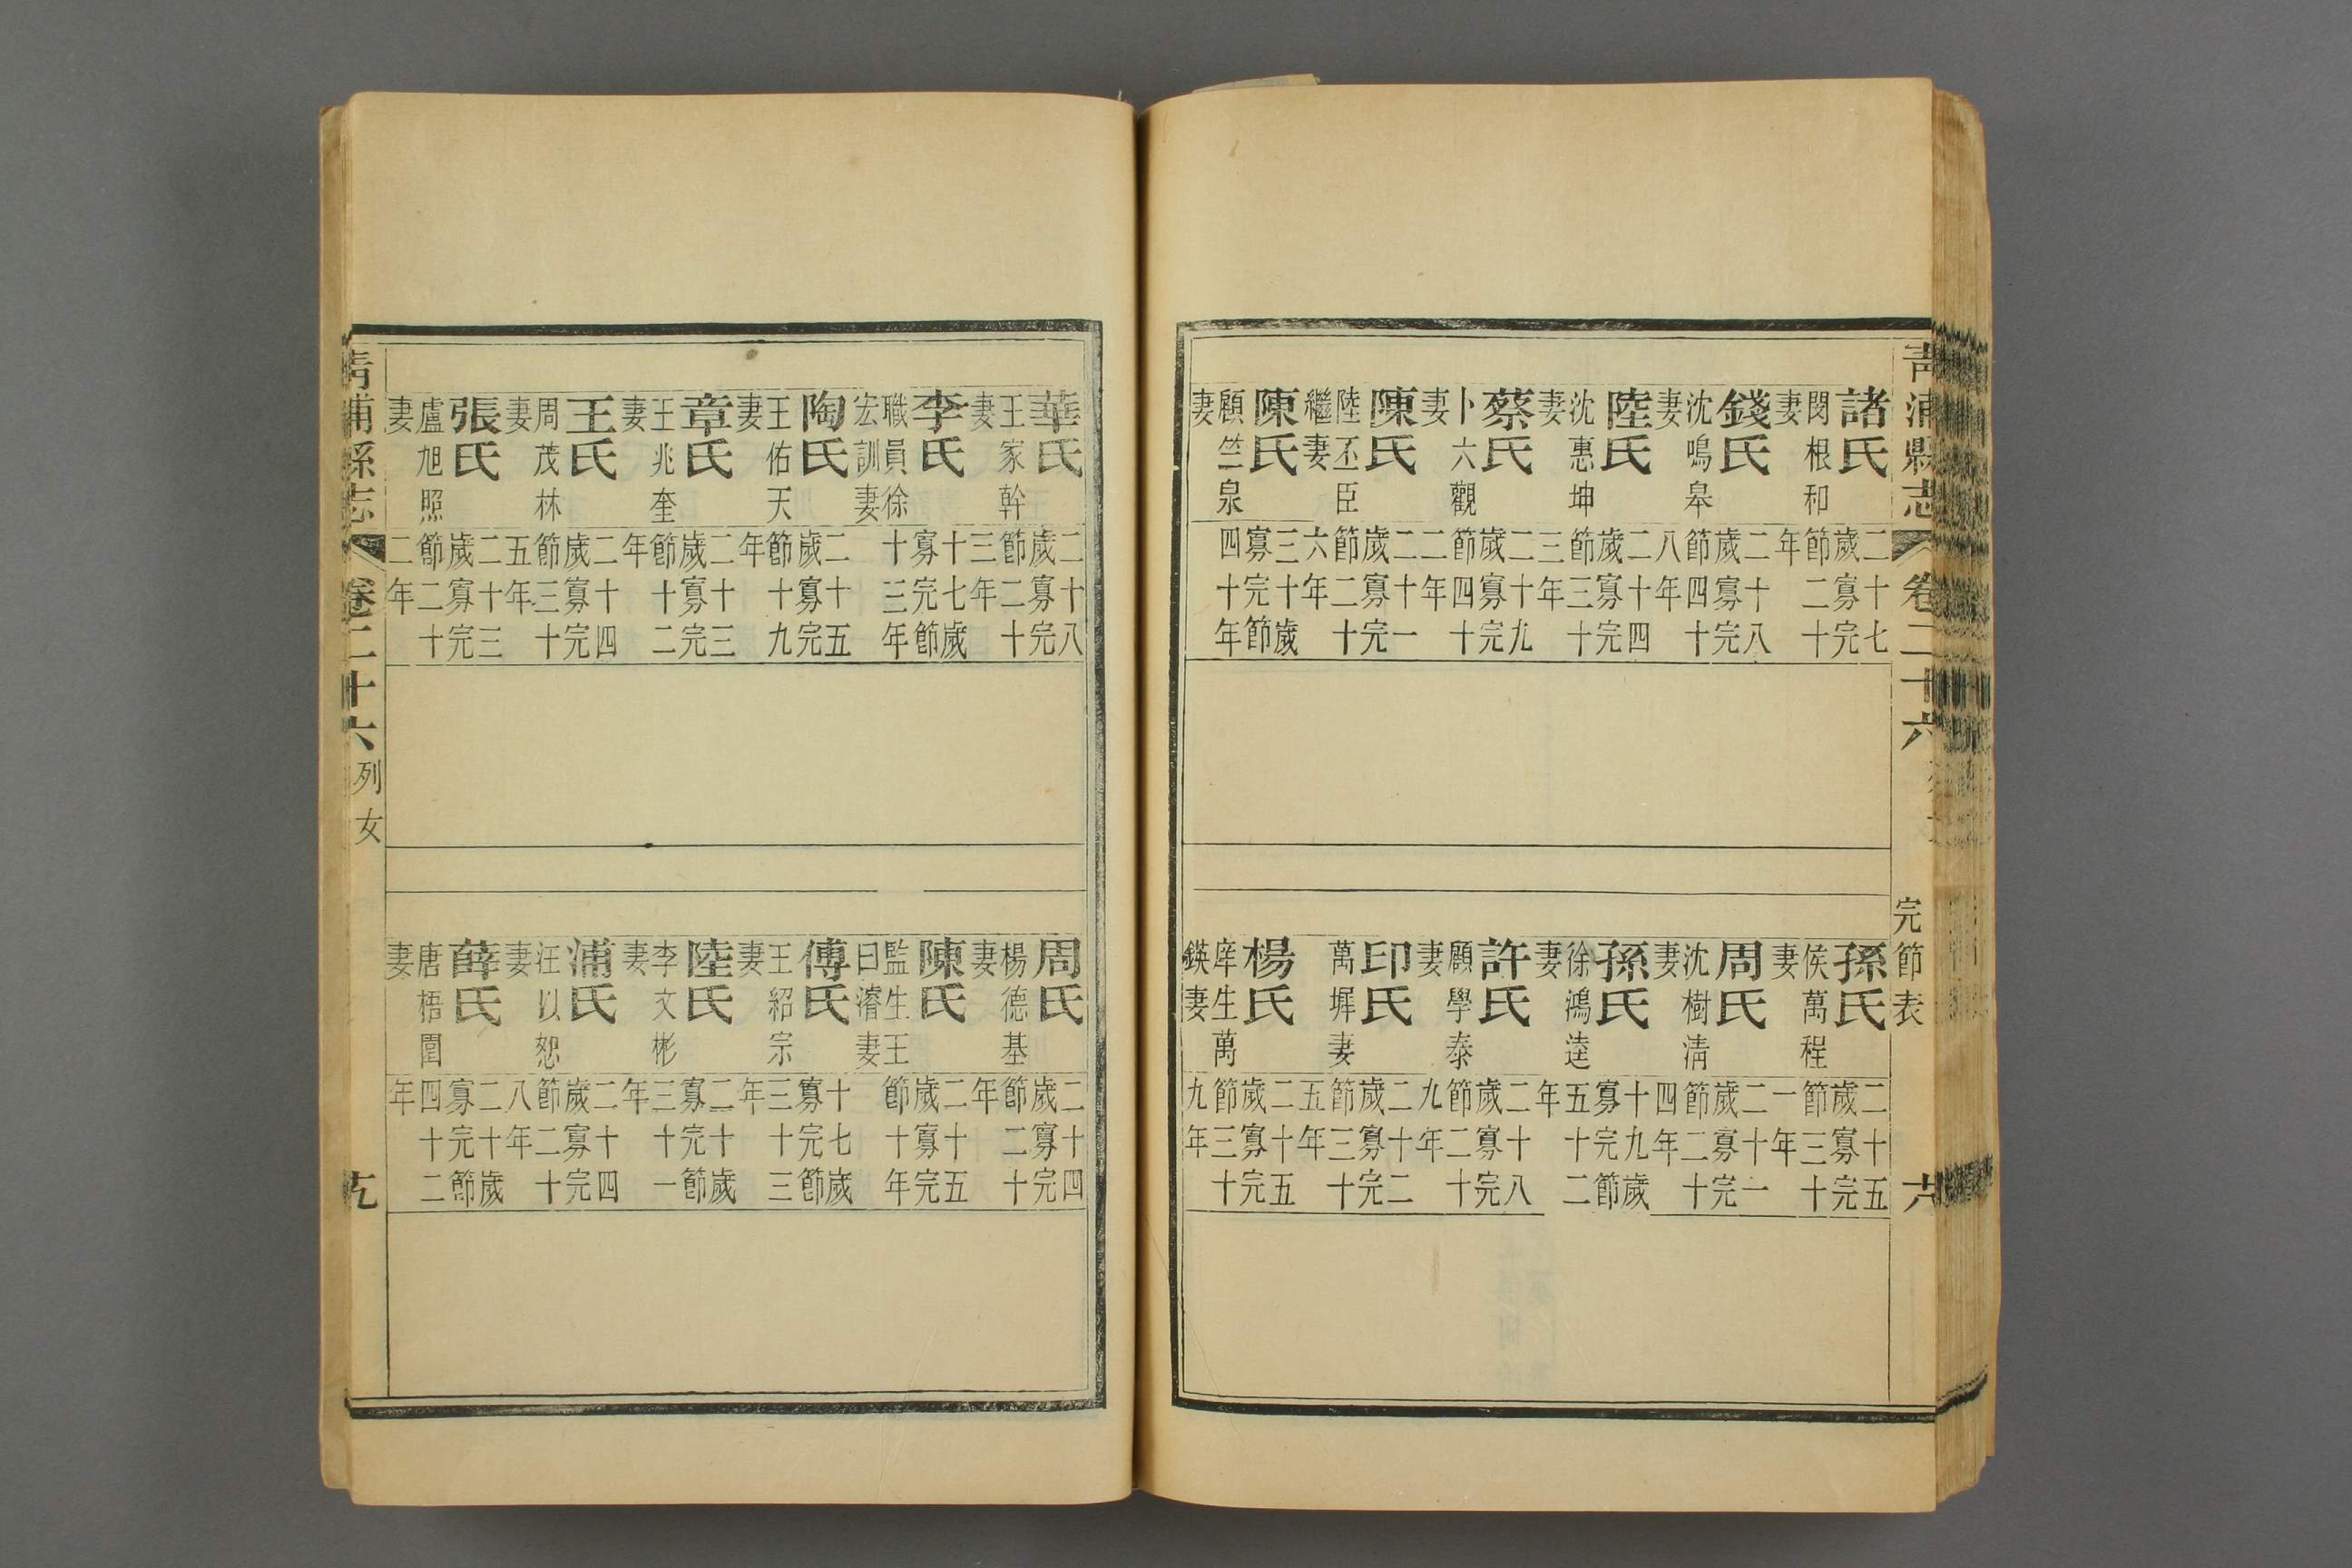 青浦縣志 卷二十六 完節表 六
諸氏
閔根和妻
二十七歲寡完節二十年
錢氏
沈鳴皋妻
二十八歲寡完節四十八年
陸氏
沈惠坤妻
二十四歲寡完節三十三年
蔡氏
卜六觀妻
二十九歲寡完節四十二年
陳氏
陸丕臣繼妻
二十一歲寡完節二十六年
陳氏
顧竺泉妻
三十歲寡完節四十年
孫氏
侯萬程妻
二十五歲寡完節三十一年
周氏
沈樹清妻
二十一歲寡完節二十四年
孫氏
徐鴻逵妻
十九歲寡完節五十二年
許氏
顧學泰妻
二十八歲寡完節二十九年
印氏
萬墀妻
二十二歲寡完節三十五年
楊氏
庠生萬鍈妻
二十五歲寡完節三十九年
華氏
王家幹妻
二十八歲寡完節二十三年
李氏
職員徐宏訓妻
十七歲寡完節十三年
陶氏
王佑天妻
二十五歲寡完節十九年
章氏
王兆奎妻
二十三歲寡完節十二年
王氏
周茂林妻
二十四歲寡完節三十五年
張氏
盧旭照妻
二十三歲寡完節二十二年
周氏
楊德基妻
二十四歲寡完節二十年
陳氏
監生王曰濬妻
二十五歲寡完節十年
傅氏
王紹宗妻
十七歲寡完節三十三年
陸氏
李文彬妻
二十歲寡完節三十一年
浦氏
汪以恕妻
二十四歲寡完節二十八年
薛氏
唐梧圍妻
二十歲寡完節四十二年
青浦縣志 卷二十六 列女